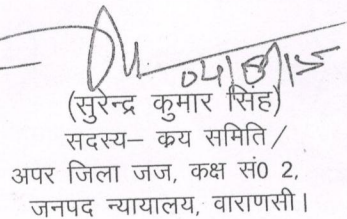 (सुरेन्द्र कुमार सिंह)
सदस्य– क्रय समिति /
अपर जिला जज, कक्ष सं0 2,
जनपद न्यायालय, वाराणसी।